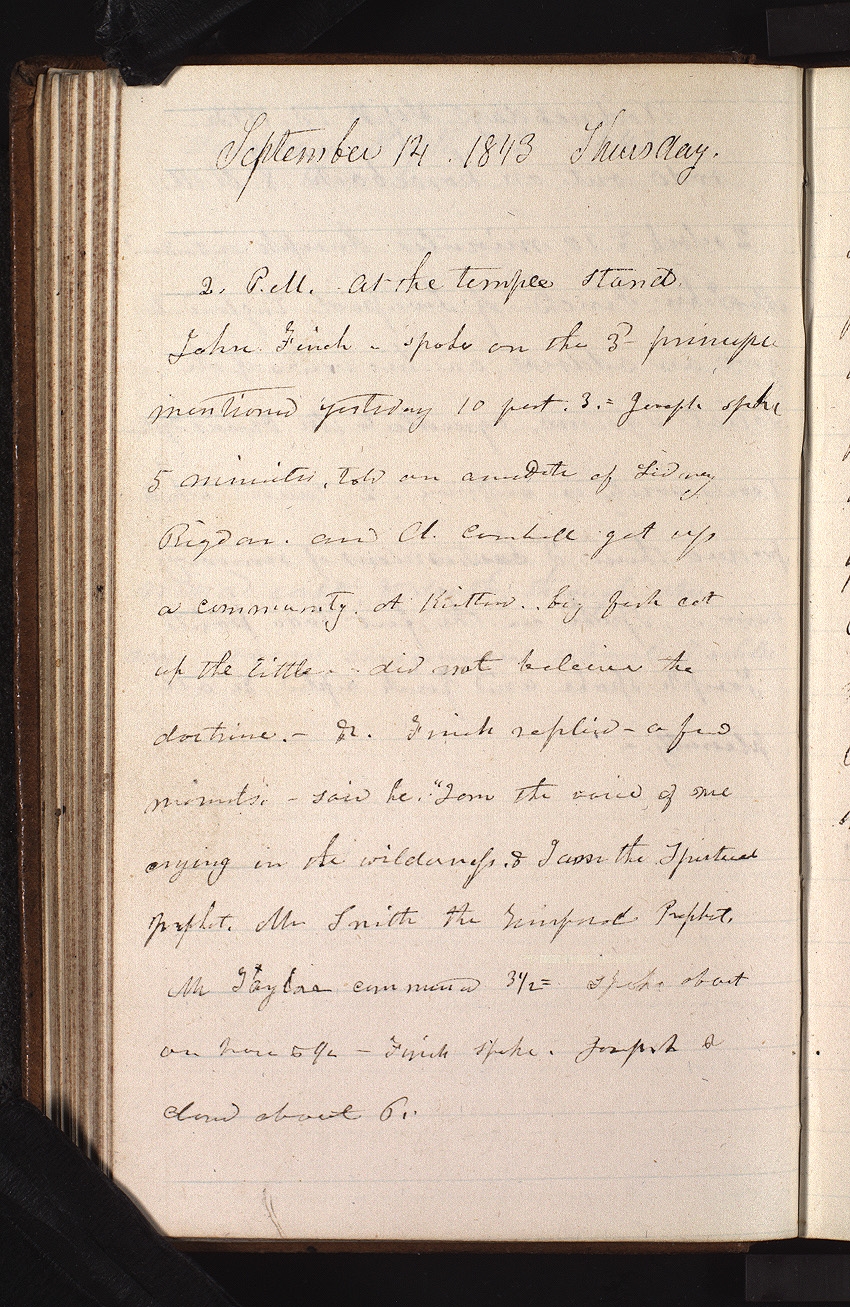 September 14. 1843 Thursday.
2. P.M. at the temple stand.
John Finch - spoke on the 3d principle
mentioned yesterday 10 past. 3.= Joseph spoke
5 minutes, told an anecdote of Sidney
Rigdon. and A. Cambell get up
a community. at Kirtland.. big fish eat
up the little. - did not beleive the
doctrine. - Finch replied - a few
minutes. - said he. "I am the voice of one
crying in the wilderness. & I am the Spiritual
prophet. Mr Smith the Temporal Prophet.
Mr Taylor commenced 3 1/2= spoke about
an hour & 1/2 - Finch spoke. Joseph &
closed about 6.